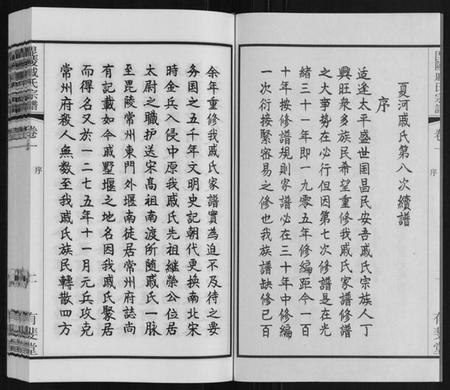 夏河戚氏第八次續譜
序
适逢太平盛世国昌民安吾戚氏宗族人丁
興旺衆多族民希望重修我戚氏家譜修譜
之大事势在必行但因第七次修譜是在光
緒三十一年即一九零五年修編距今一百
十年按修譜規則家譜必在三十年中修編
一次衍接緊容易之修也我族譜缺修已百
有斐堂
余年重修我戚氏家譜實為迫不及待之要
务国之五千年文明史記朝代更换南北宋
時金兵入侵中原我戚氏先祖継榮公位居
太尉之職护送宋高祖南渡所随戚氏一脉
至毘陵常州東門外堰南徒居常州府誌尚
有記載如今戚墅堰之地名因我戚氏聚居
而得名又於一二七五年十一月元兵攻克
常州府殺人無数至我戚氏族民轉散四方
毘陵戚氏宗譜
卷一
序
有斐堂